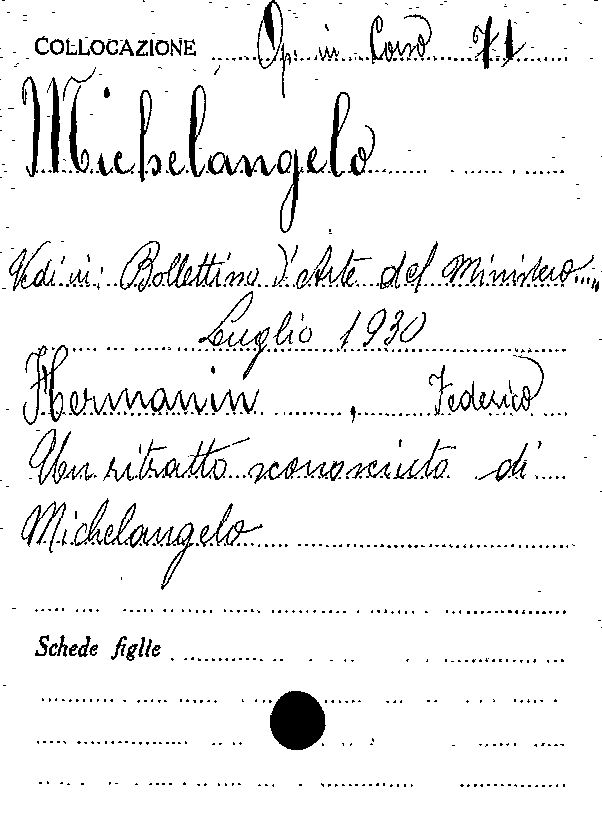 COLLOCAZIONE Op. in Corso 71
Michelangelo
Vedi in: Bollettino d'Arte del Ministero...,,
Luglio 1930
Hermanin , Federico
Un ritratto sconosciuto di
Michelangelo
Schede figlie